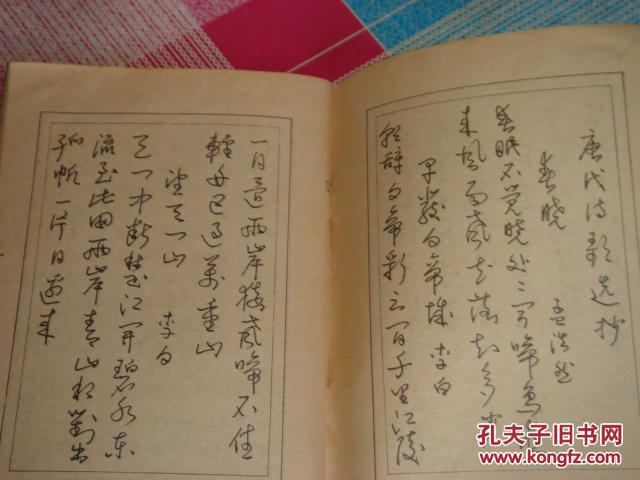 唐代诗歌选抄
春晓 孟浩然
春眠不觉晓处处闻啼鸟
来风雨声花落知多少
早发白帝城 李白
朝辞白帝彩云间千里江陵
一日还两岸猿声啼不住
轻舟已过万重山
望天门山 李白
天门中断楚江开碧水东
流至此回两岸青山相对出
孤帆一片日边来
孔夫子旧书网
www.kongfz.com